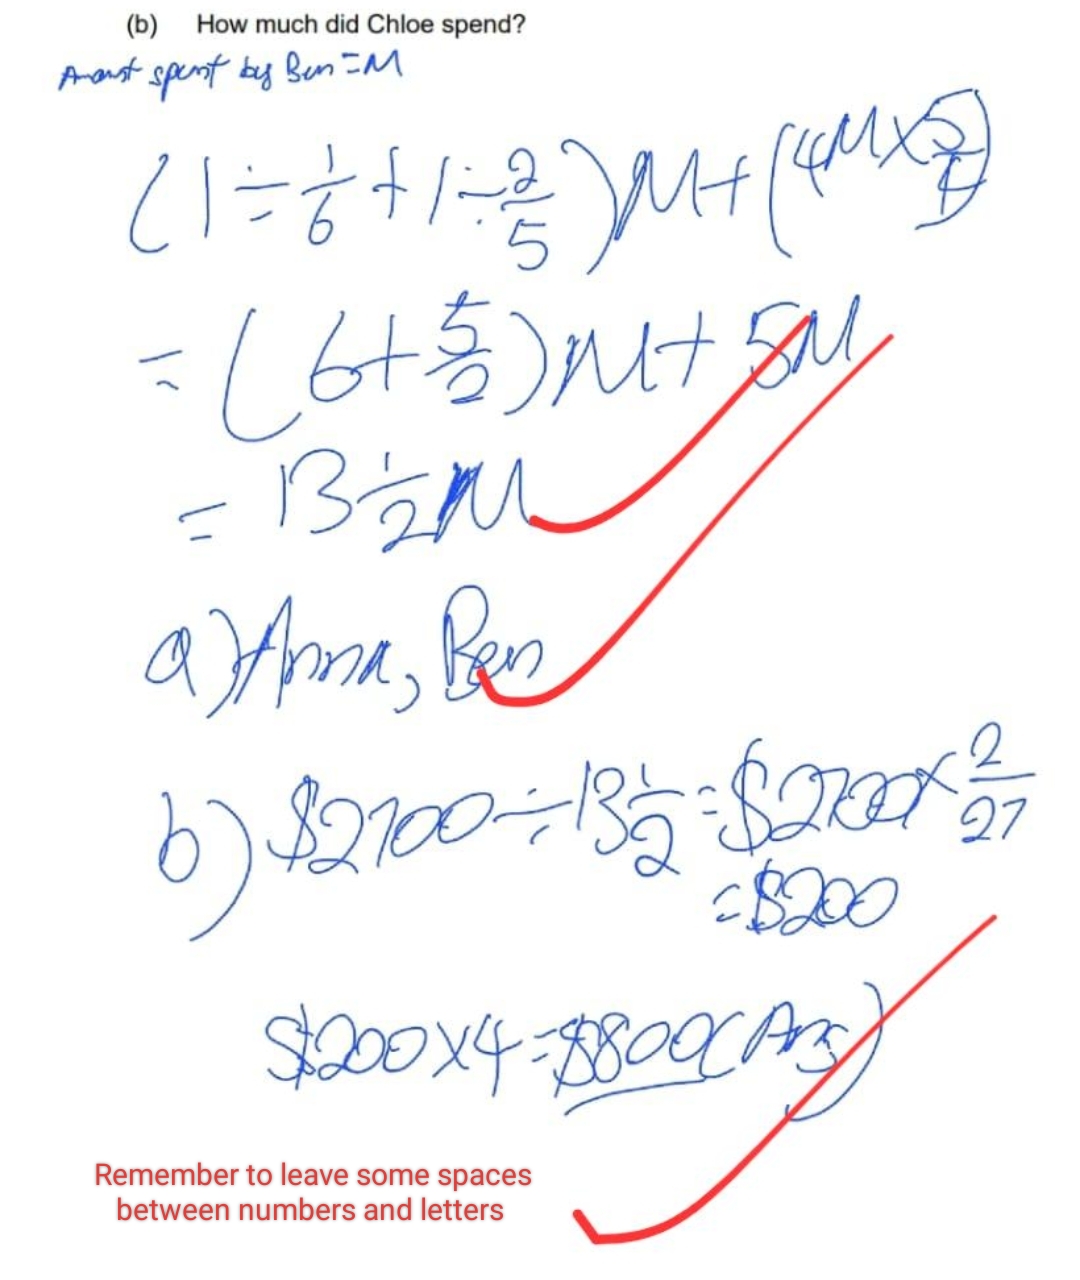 (b) How much did Chloe spend?
Amount spent by Ben = M
(1 ÷ 1/6 + 1 ÷ 2/5) M + (4M × 5/4)
= (6 + 5/2) M + 5M
= 13 1/2 M
a) Anna, Ben
b) $2700 ÷ 13 1/2 = $2700 × 2/27
= $200
$200 × 4 = $800 (Ans)
Remember to leave some spaces
between numbers and letters